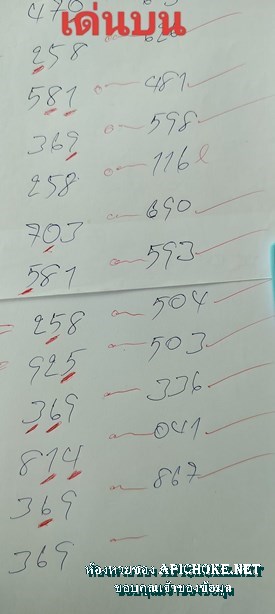 เด่นบน
470
258
581 481
369 598
258 116 l
703 690
581 593
258 504
925 503
369 336
814 041
369 867
369
ห้องหวยซอง APICHOKE.NET
ขอบคุณเจ้าของข้อมูล